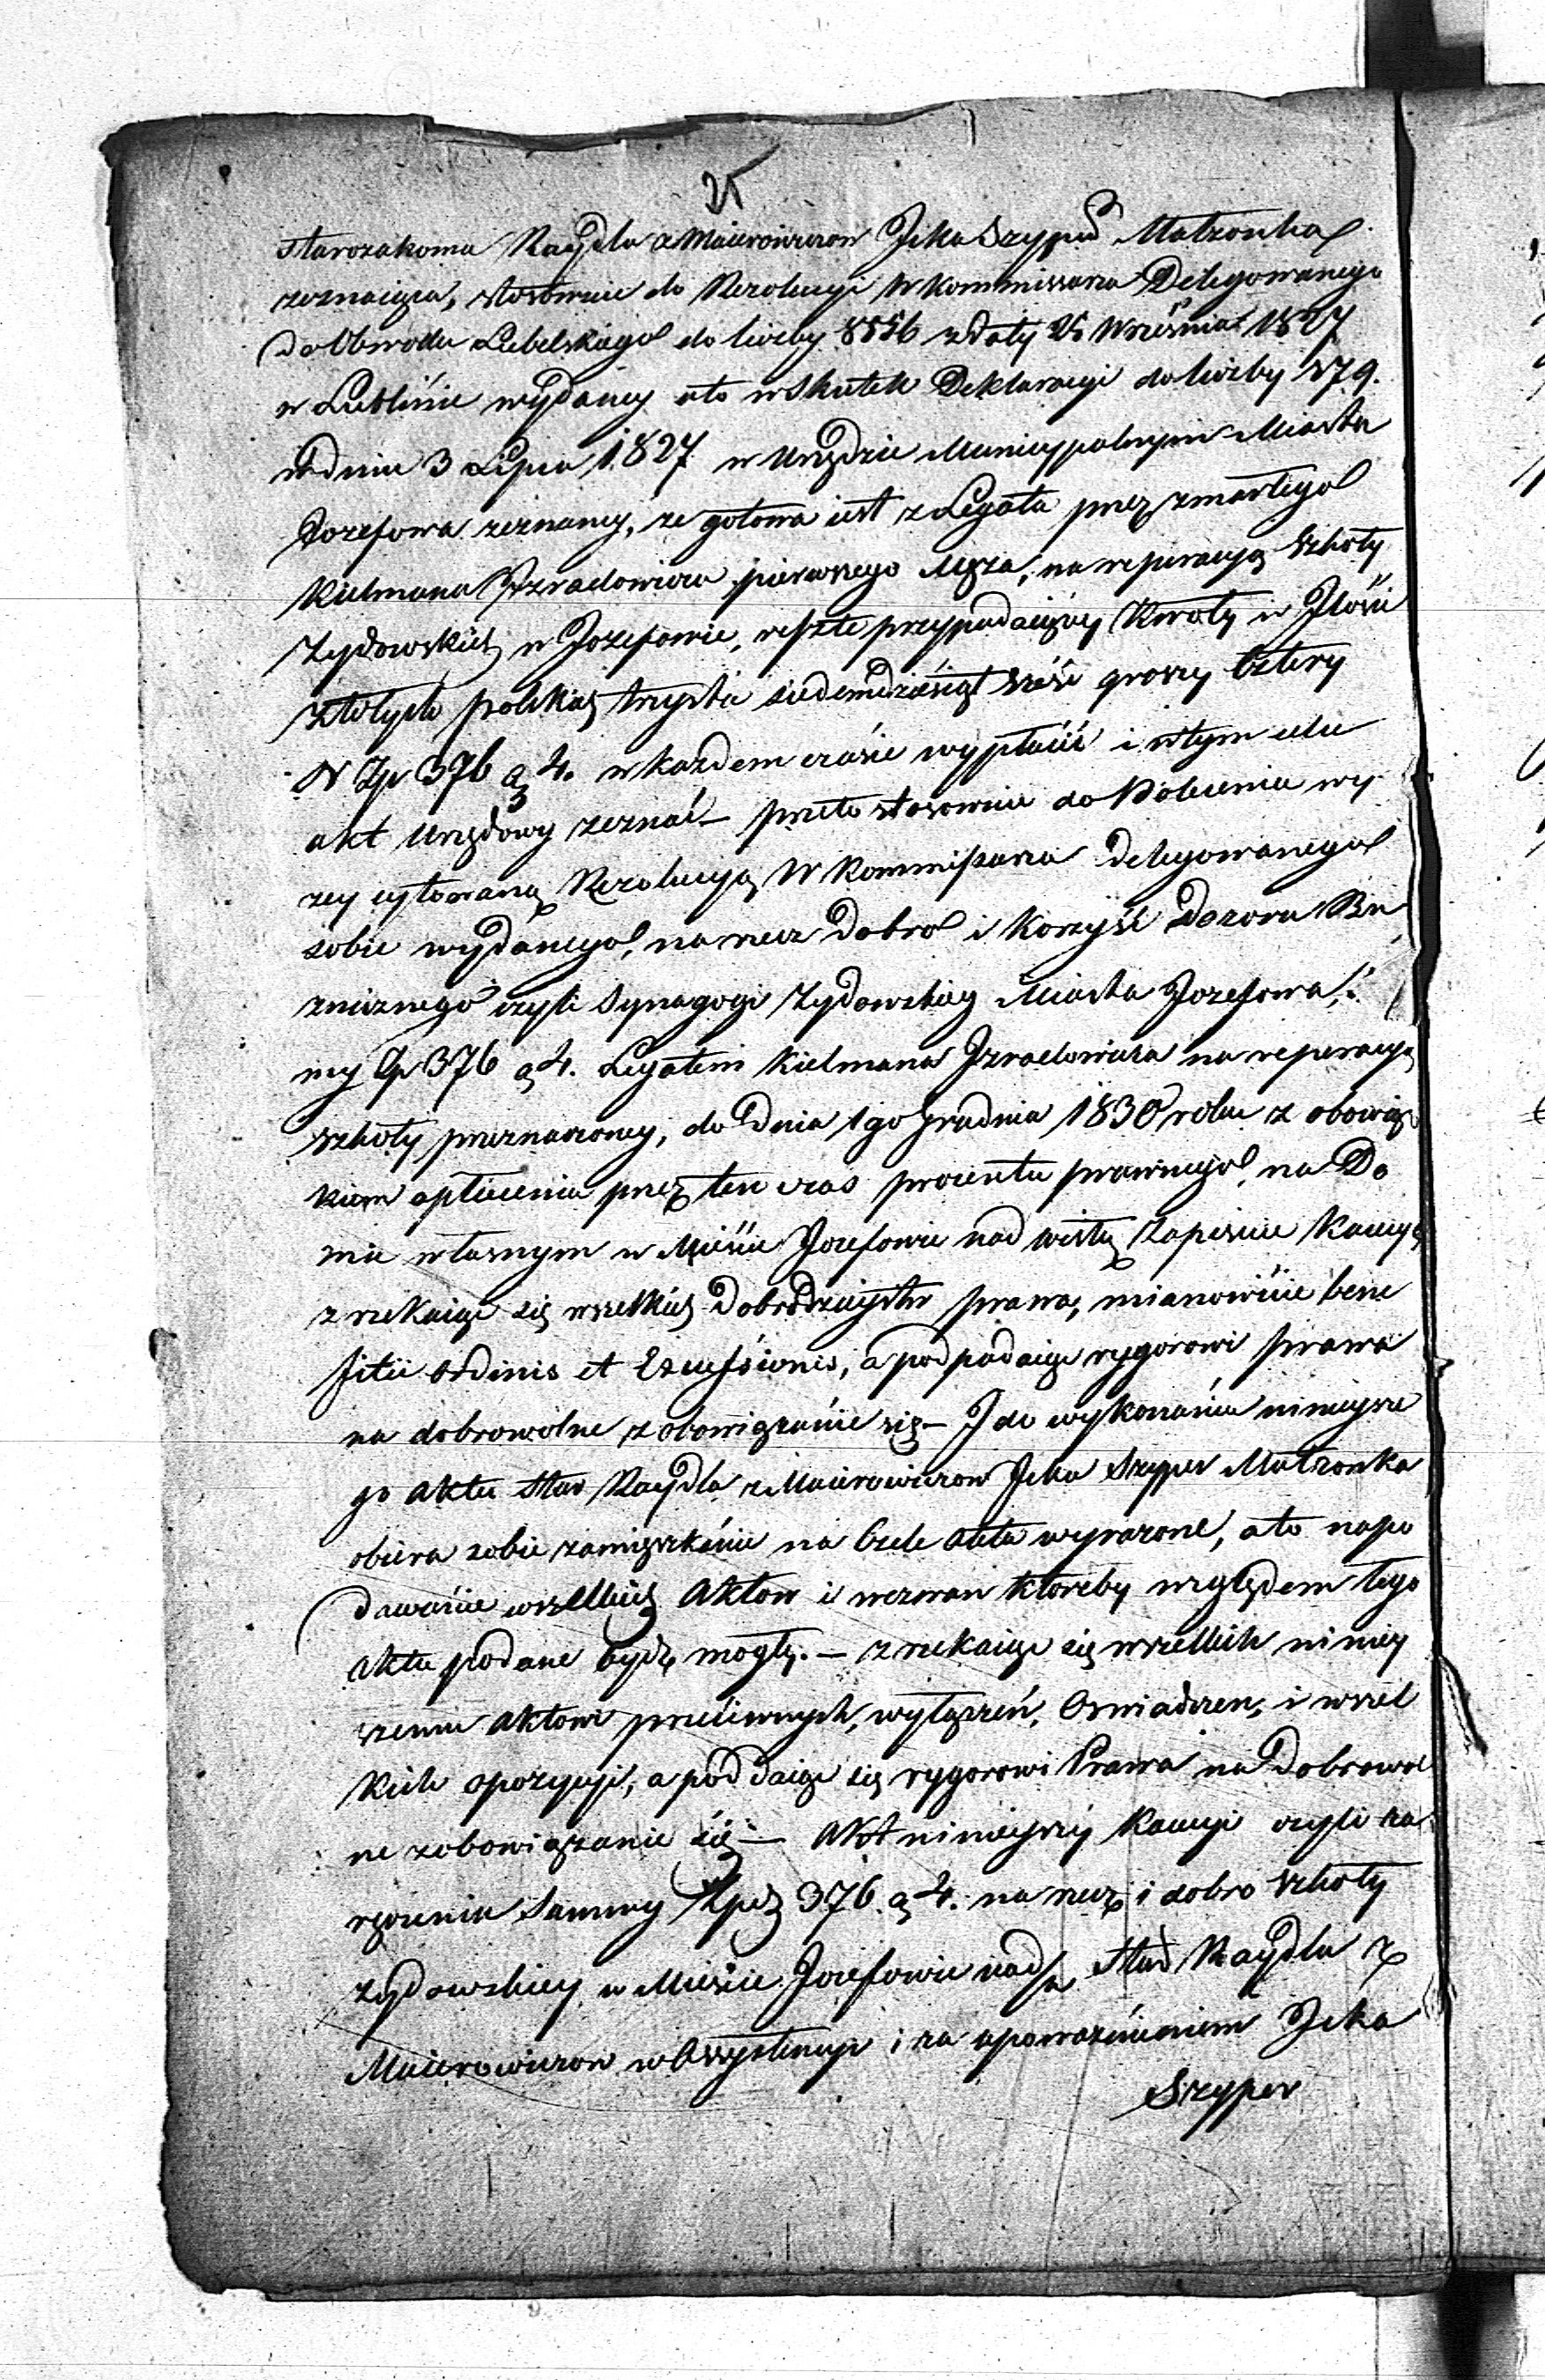 25
Starozakonna Raydla z Maierowiczow Icka Szyper Małzonka
zeznaiąca, stosownie do Rezolucyi W Kommissarza Delegowanego
do Obwodu Lubelskiego do liczby 8556 z daty 25 Września 1827
w Lublinie wydaney a to w skutek Deklaracyi do liczby 179.
w dniu 3 Lipca 1827 w Urzędzie Municypalnym Miasta
Jozefowa zeznaney, ze gotowa iest z Legata przez zmarłego
Kielmana Izraelowicza pierwszego Męza, na reperacyą Szkoły
Zydowskiey w Jozefowie, reszte przypadaiącey Kwoty w Ilości
złotych polskich trzysta siedemdziesiąt sześć groszy cztery
N Zp 376 g 4. w kazdem czasie wypłacić i w tym celu
akt Urzędowy zeznać – przeto stosownie do Polecenia wy
zey cytowaną Rezolucyą W Kommissarza Delegowanego
sobie wydanego, na rzecz Dobro i Korzyść Dozoru Bu
znicznego czyli Synagogi Zydowskiey Miasta Jozefowa,
my Zp 376 g 4. Legatem Kielmana Izraelowicza na reperacyą
szkoły przeznaczoney, do Dnia 1go Grudnia 1830 roku z obowiąz
kiem opłacenia przez ten czas procentu prawnego, na Do
mie własnym w Mieście Jozefowie nad Wisłą Zapisuie Kaucyą
zrzekaiąc się wszelkich Dobrodzieystw prawa, mianowicie bene
ficii ordinis et Excussionis, a podpadaiąc rygorowi prawa
na dobrowolne zobowiązanie się – I do wykonania ninieysze
go Aktu Star Raydla z Maierowiczow Icka Szyper Małzonka
obiera sobie zamięszkanie na Czele Akta wyrazone, a to na po
dawanie wszelkich Aktow i wezwan ktoreby względem tego
Aktu podane bydź mogły. – zrzekaiąc się wszelkich niniey
szemu Aktowi przeciwnych, wyłączeń, Oswiadczen, i wszel
kich opozycyi, a poddaiąc się rygorowi Prawa na Dobrowol
ne zobowiązanie się – Akt ninieyszey Kaucyi czyli za
ręczenia Summy Zpch 376. g 4. na rzecz i dobro Szkoły
zydowskiey w Mieście Jozefowie nad W Star Raydla z
Maierowiczow w Assystencyi i za upowaznieniem Icka
Szyper